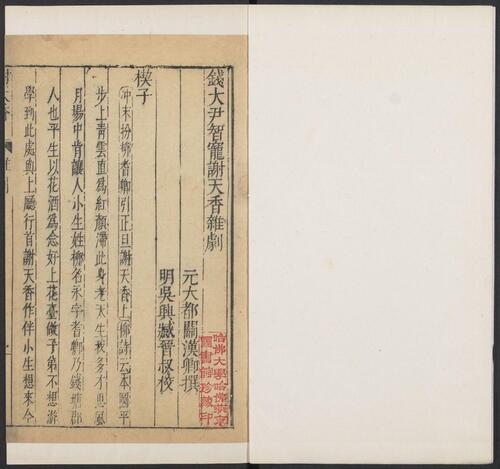 錢大尹智寵謝天香雜劇
元大都關漢卿撰
明吳興臧晉叔校
楔子
冲末扮柳耆卿引正旦謝天香上柳詩云本圖平
步上青雲直爲紅顏滯此身老天生我多才思風
月塲中肯讓人小生姓柳名永字耆卿乃錢塘郡
人也平生以花酒爲念好上花臺做子弟不想游
學到此處與上廳行首謝天香作伴小生想來今
哈佛大學哈佛燕京
圖書館珍藏印